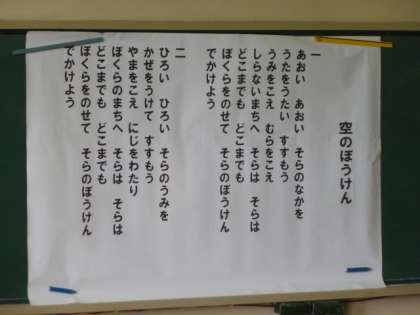 空のぼうけん
一
あおい　あおい　そらのなかを
うたをうたい　すすもう
うみをこえ　むらをこえ
しらないまちへ　そらは　そらは
どこまでも　どこまでも
ぼくらをのせて　そらのぼうけん
でかけよう
二
ひろい　ひろい　そらのうみを
かぜをうけて　すすもう
やまをこえ　にじをわたり
ぼくらのまちへ　そらは　そらは
どこまでも　どこまでも
ぼくらをのせて　そらのぼうけん
でかけよう